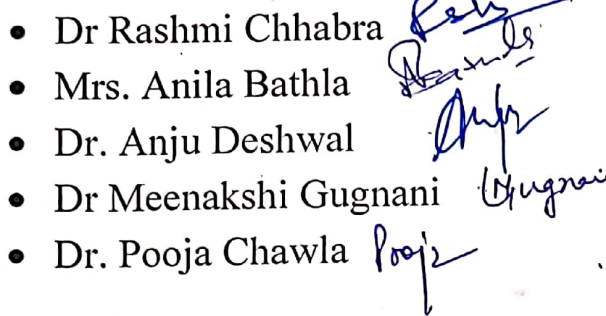 • Dr Rashmi Chhabra
• Mrs. Anila Bathla
• Dr. Anju Deshwal
• Dr Meenakshi Gugnani Gugnani
• Dr. Pooja Chawla Pooja